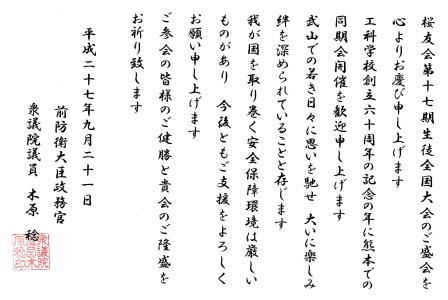 桜友会第十七期生徒全国大会のご盛会を
心よりお慶び申し上げます
工科学校創立六十周年の記念の年に熊本での
同期会開催を歓迎申し上げます
武山での若き日々に思いを馳せ 大いに楽しみ
絆を深められていることと存じます
我が国を取り巻く安全保障環境は厳しい
ものがあり 今後ともご支援をよろしく
お願い申し上げます
ご参会の皆様のご健勝と貴会のご隆盛を
お祈り致します
平成二十七年九月二十一日
前防衛大臣政務官
衆議院議員 木原 稔
衆議院議員木原稔印